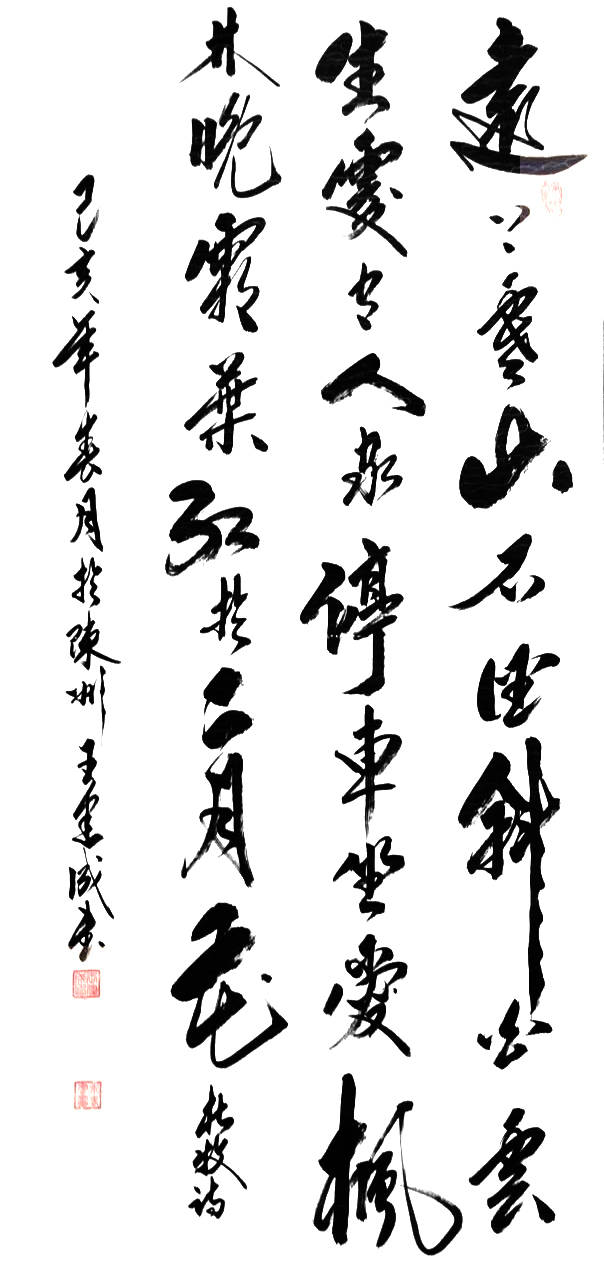 遠上寒山石徑斜白雲
生處有人家停車坐愛楓
林晚霜葉紅於二月花 杜牧詩
己亥年春月於陳州 王成書